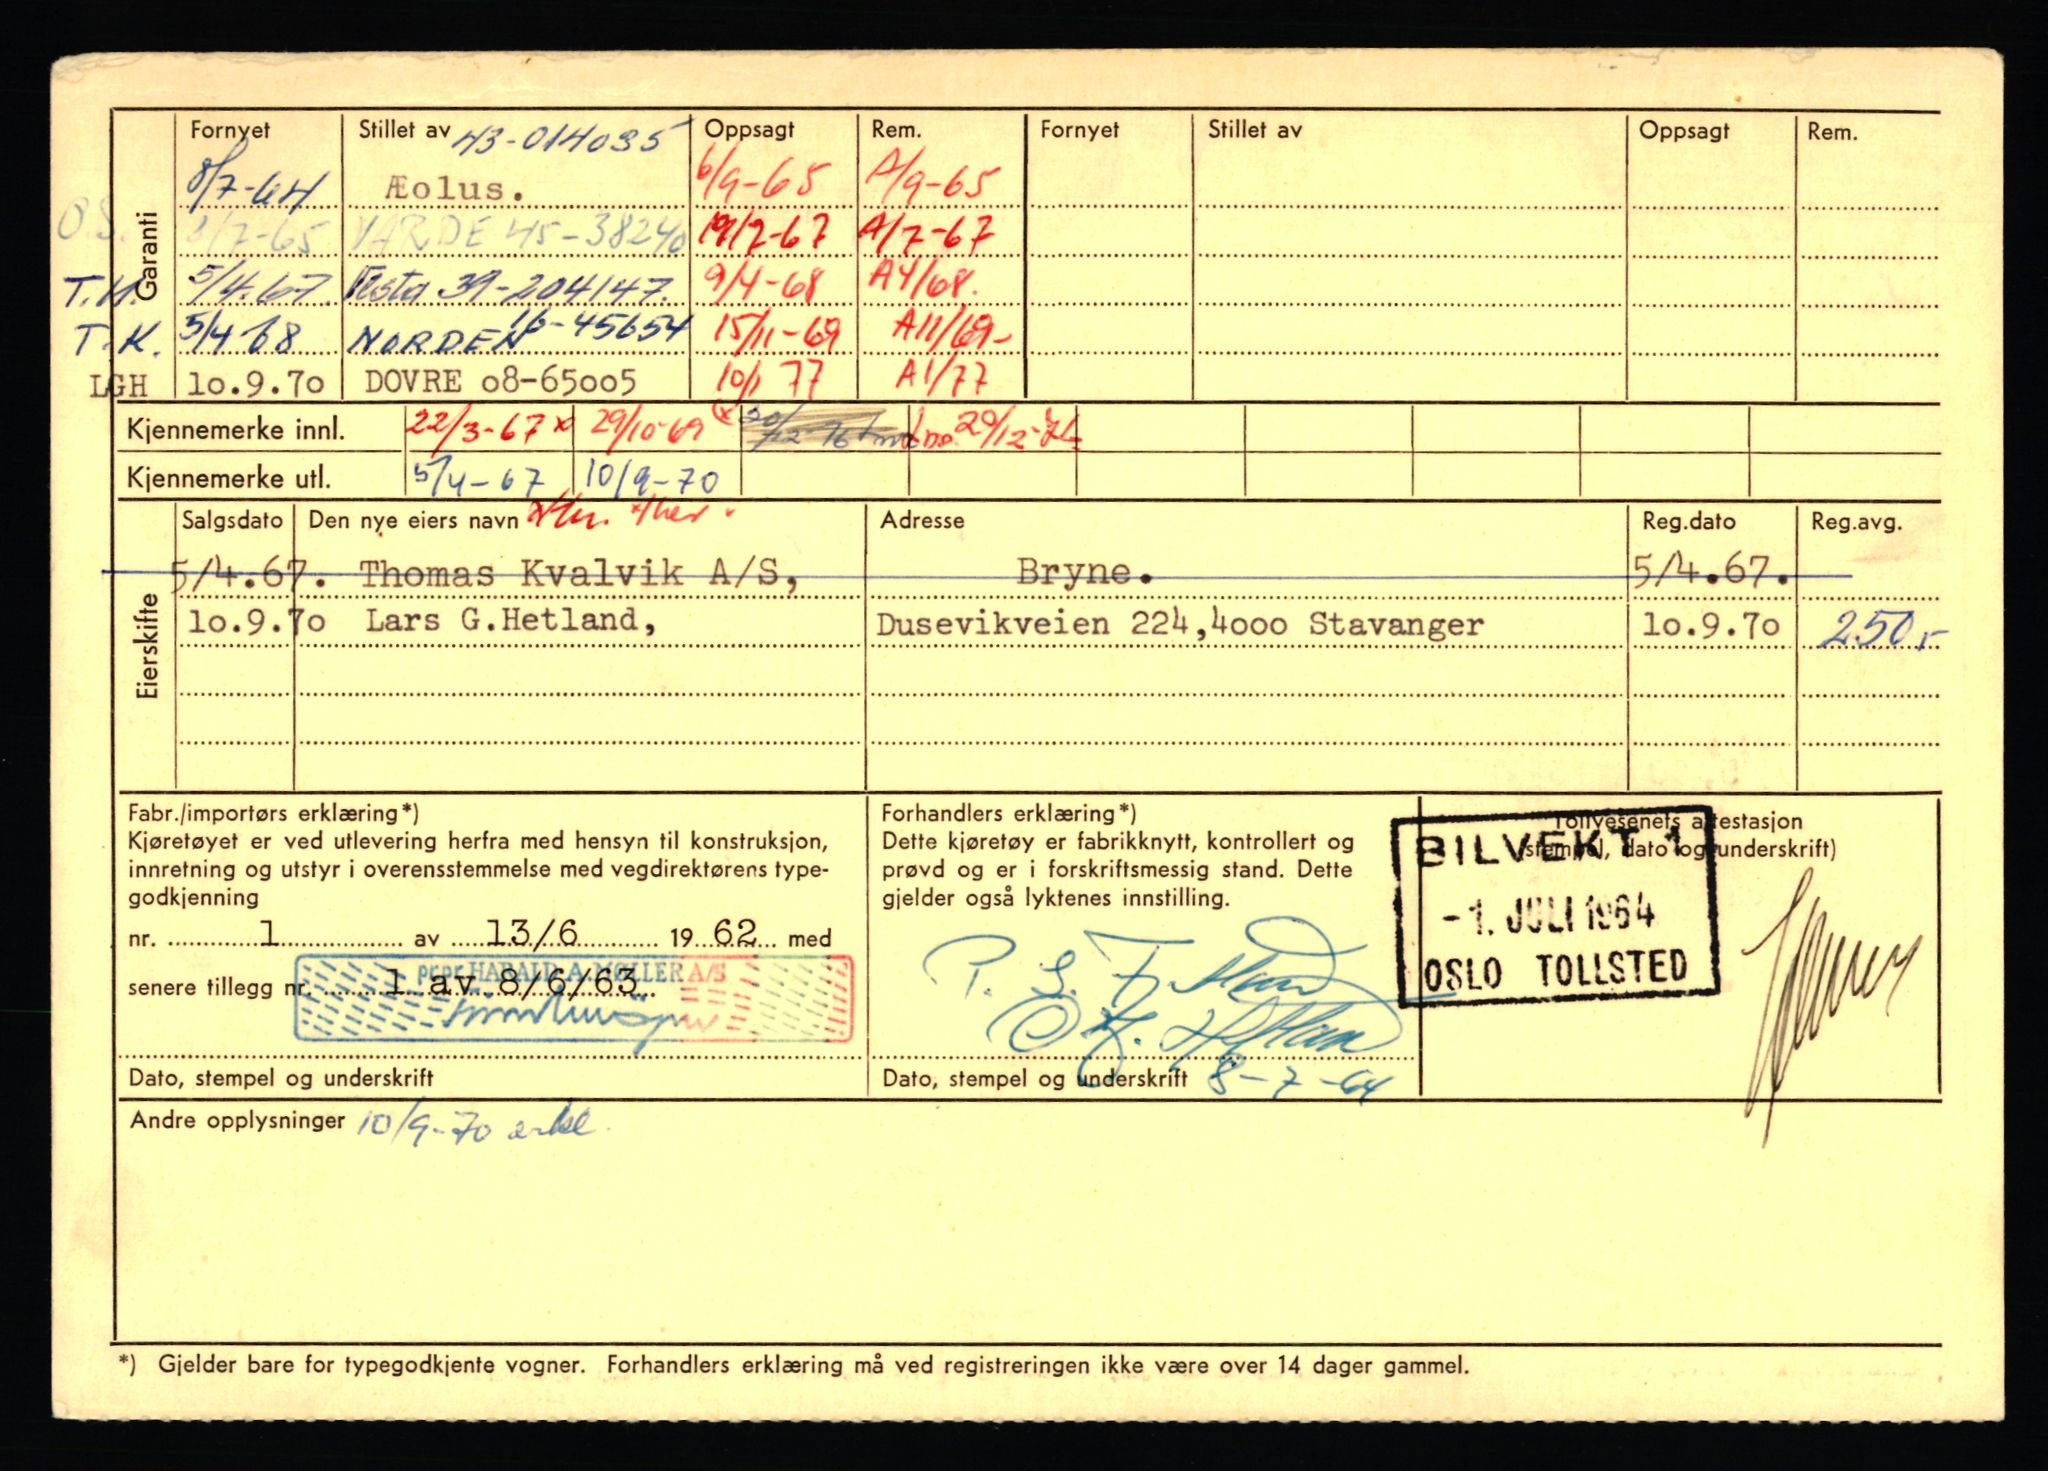 Garanti
Fornyet Stillet av 43-014035 Oppsagt Rem. Fornyet Stillet av Oppsagt Rem.
8/7-64 Æolus. 6/9-65 A/9-65
O.S. 8/7-65 VARDE 45-38240 19/7-67 A/7-67
T.H. 5/4.67. Vesta 39-204147. 9/4-68 A4/68.
T.K. 5/4 68 NORDEN 16-45654 15/11-69 A11/69-
LGH 10.9.70 DOVRE 08-65005 10/1 77 A1/77
Kjennemerke innl. 22/3-67 x 29/10-69 (x 20/12-76 20/12-76
Kjennemerke utl. 5/4-67 10/9-70
Eierskifte
Salgsdato Den nye eiers navn Adresse Reg.dato Reg.avg.
5/4.67. Thomas Kvalvik A/S, Bryne. 5/4.67.
10.9.70 Lars G.Hetland, Dusevikveien 224,4000 Stavanger 10.9.70 250,-
Fabr./importørs erklæring*)
Kjøretøyet er ved utlevering herfra med hensyn til konstruksjon,
innretning og utstyr i overensstemmelse med vegdirektørens type-
godkjenning
nr. 1 av 13/6 19 62 med
prpr HARALD A. MØLLER A/S
senere tillegg nr. 1 av 8/6/63
Dato, stempel og underskrift
Forhandlers erklæring*)
Dette kjøretøy er fabrikknytt, kontrollert og
prøvd og er i forskriftsmessig stand. Dette
gjelder også lyktenes innstilling.
Dato, stempel og underskrift 8-7-64
Tollvesenets attestasjon
(stempel, dato og underskrift)
BILVEKT 1
-1. JULI 1964
OSLO TOLLSTED
Andre opplysninger 10/9-70 erkl.
*) Gjelder bare for typegodkjente vogner. Forhandlers erklæring må ved registreringen ikke være over 14 dager gammel.